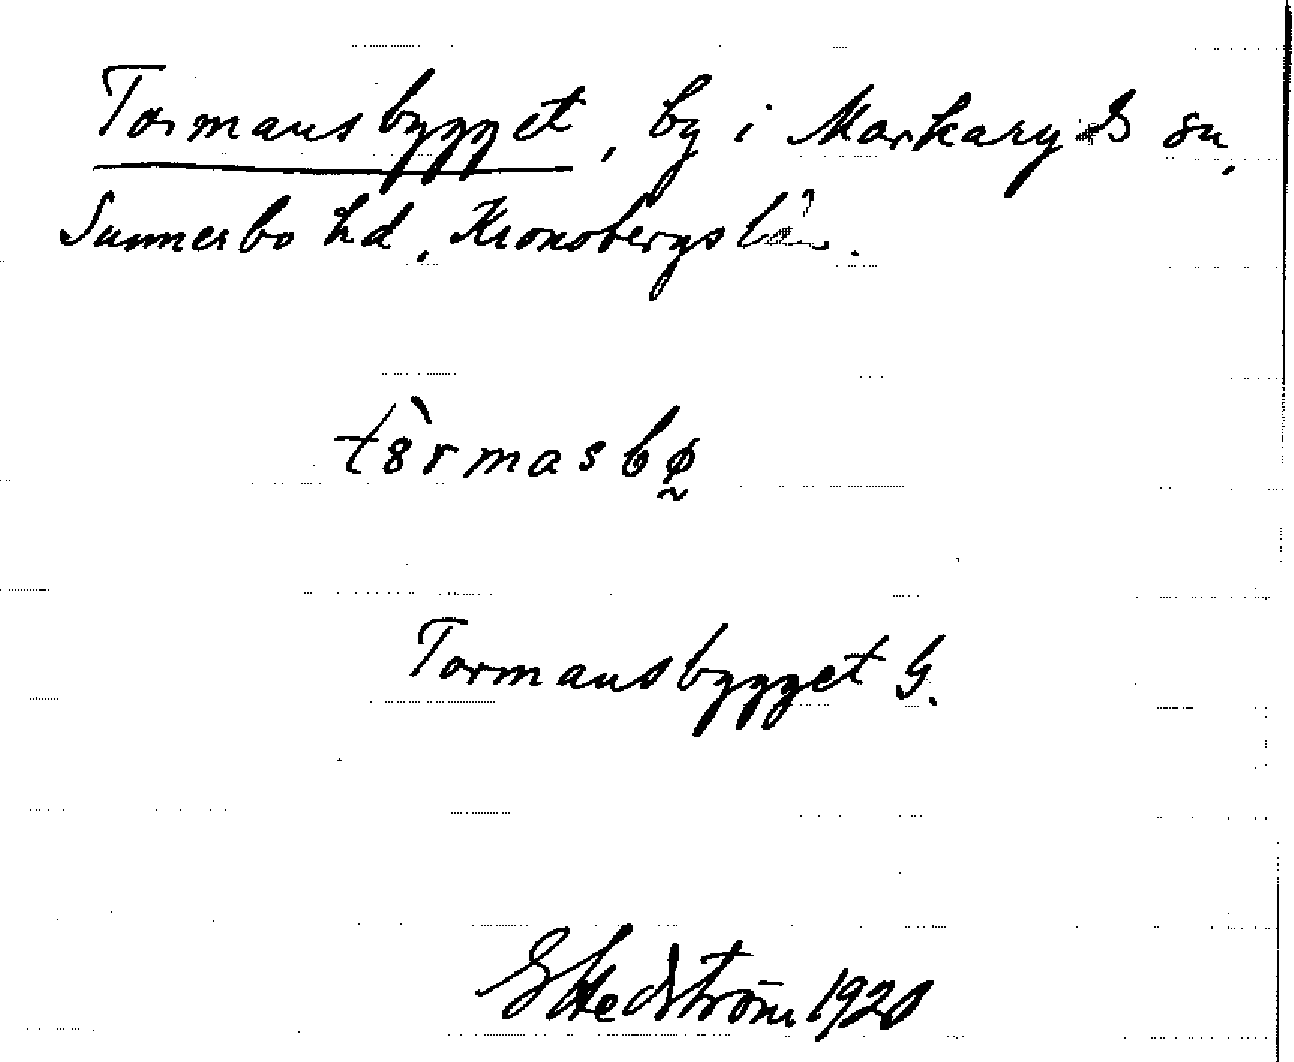 Tormansbygget, by i Markaryds sn,
Sunnerbo hd, Kronobergs län.
tȣ̀rmasbø̰
Tormansbygget G.
G Hedström 1920